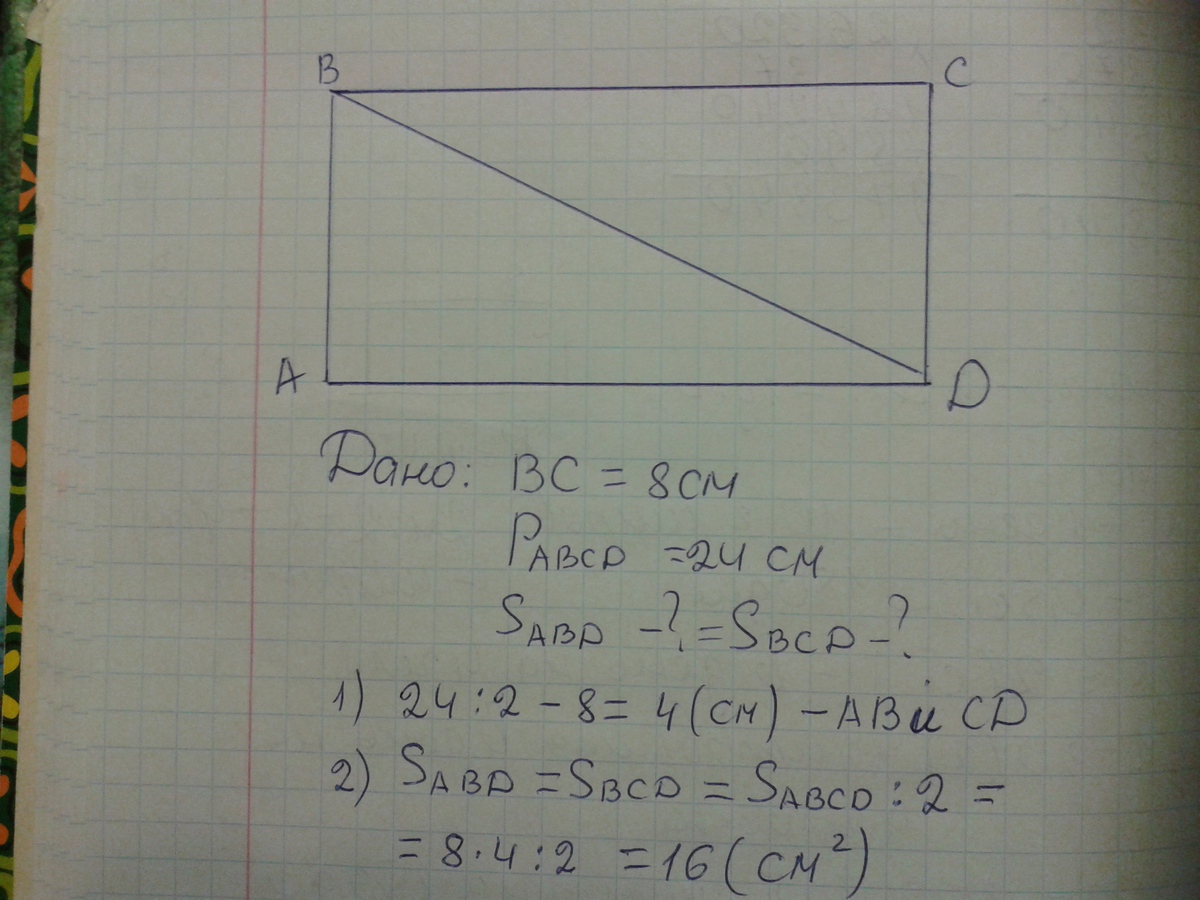 B C
A D
Дано: BC = 8см
PABCD = 24 см
SABD -? = SBCD -?
1) 24 : 2 - 8 = 4 (см) - AB и CD
2) SABD = SBCD = SABCD : 2 =
= 8 · 4 : 2 = 16 (см²)